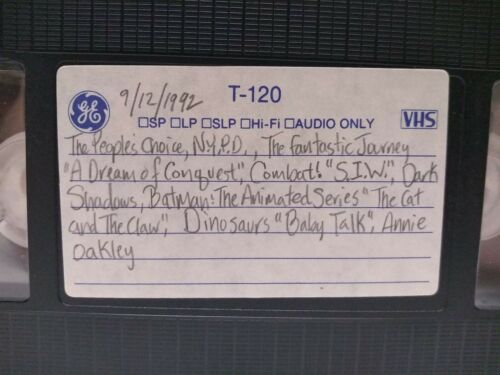 GE 9/12/1992 T-120
□SP □LP □SLP □Hi-Fi □AUDIO ONLY VHS
The People's Choice, N.Y.P.D., The Fantastic Journey
"A Dream of Conquest", Combat! "S.I.W.", Dark
Shadows, Batman: The Animated Series "The Cat
and The Claw", Dinosaurs "Baby Talk", Annie
Oakley